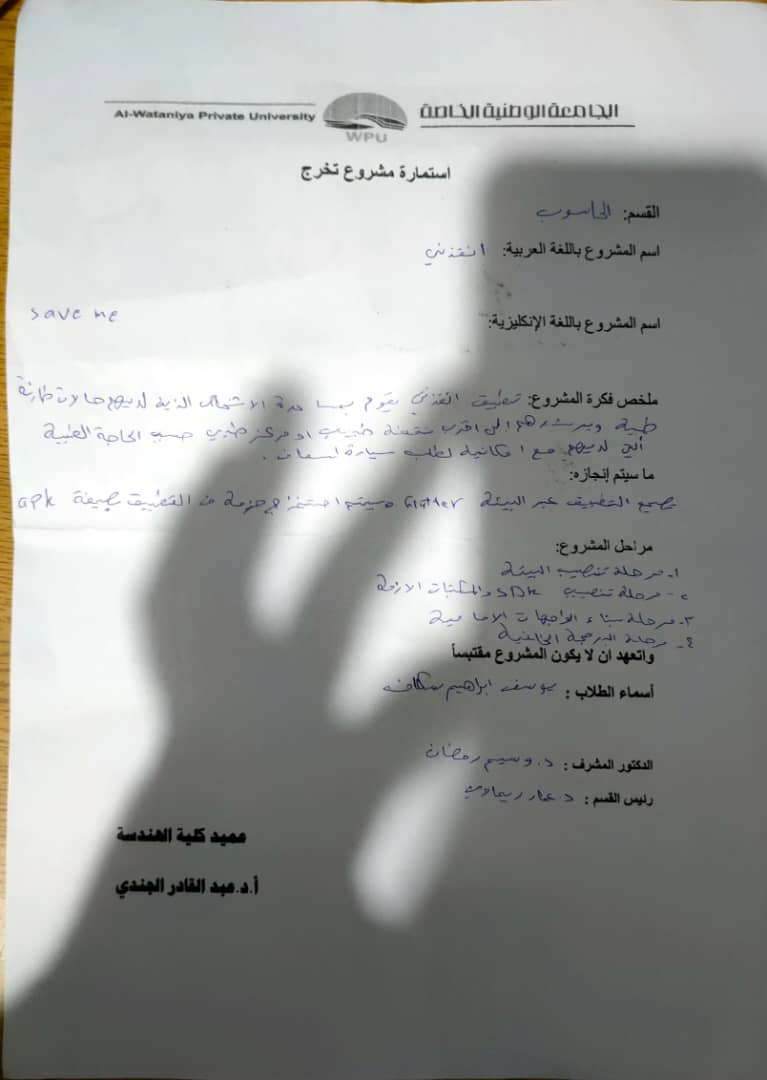 Al-Wataniya Private University
WPU
الجامعة الوطنية الخاصة
استمارة مشروع تخرج
القسم: الحاسوب
اسم المشروع باللغة العربية: انقذني
اسم المشروع باللغة الإنكليزية:
save me
ملخص فكرة المشروع: تطبيق انقذني يقوم بمساعدة الاشخاص الذين لديهم حالات طارئة
طبية ويرشدهم الى اقرب نقطة طبيب او مركز طبي حسب الحاجة الطبية
التي لديهم مع امكانية لطلب سيارة اسعاف.
ما سيتم إنجازه:
تصميم التطبيق عبر البيئة وسيتم استخراج حزمة من التطبيق بصيغة apk
مراحل المشروع:
١- مرحلة تنصيب البيئة
٢- مرحلة تنصيب SDK والمكتبات الازمة
٣- مرحلة بناء الواجهات الامامية
٤- مرحلة البرمجة الخلفية
واتعهد ان لا يكون المشروع مقتبساً
أسماء الطلاب : يوسف ابراهيم
الدكتور المشرف : د. وسيم رمضان
رئيس القسم : د. عمار ريماوي
عميد كلية الهندسة
أ.د.عبد القادر الجندي